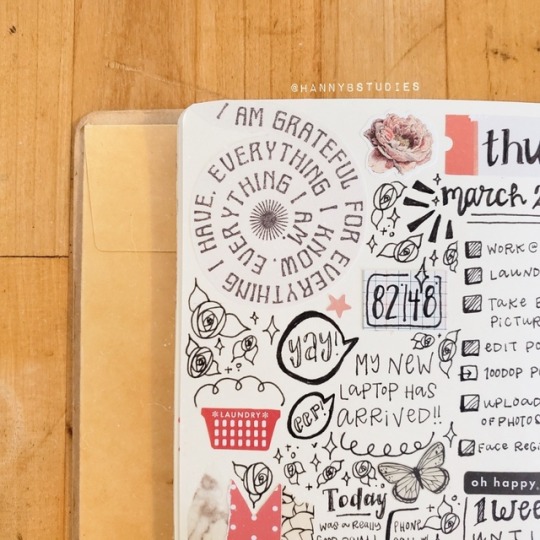 @HANNYBSTUDIES
I AM GRATEFUL FOR EVERYTHING I HAVE. EVERYTHING I KNOW. EVERYTHING I AM.
thu
march 2
WORK @
LAUND
TAKE B
PICTUR
EDIT PO
100DOP P
UPLOAD
OF PHOTOS
FACE REGI
82%48
YAY!
MY NEW
LAPTOP HAS
ARRIVED!!
EEP!
LAUNDRY
Today
WAS A REALLY
PHONE
oh happy
1 WEE
UNTIL